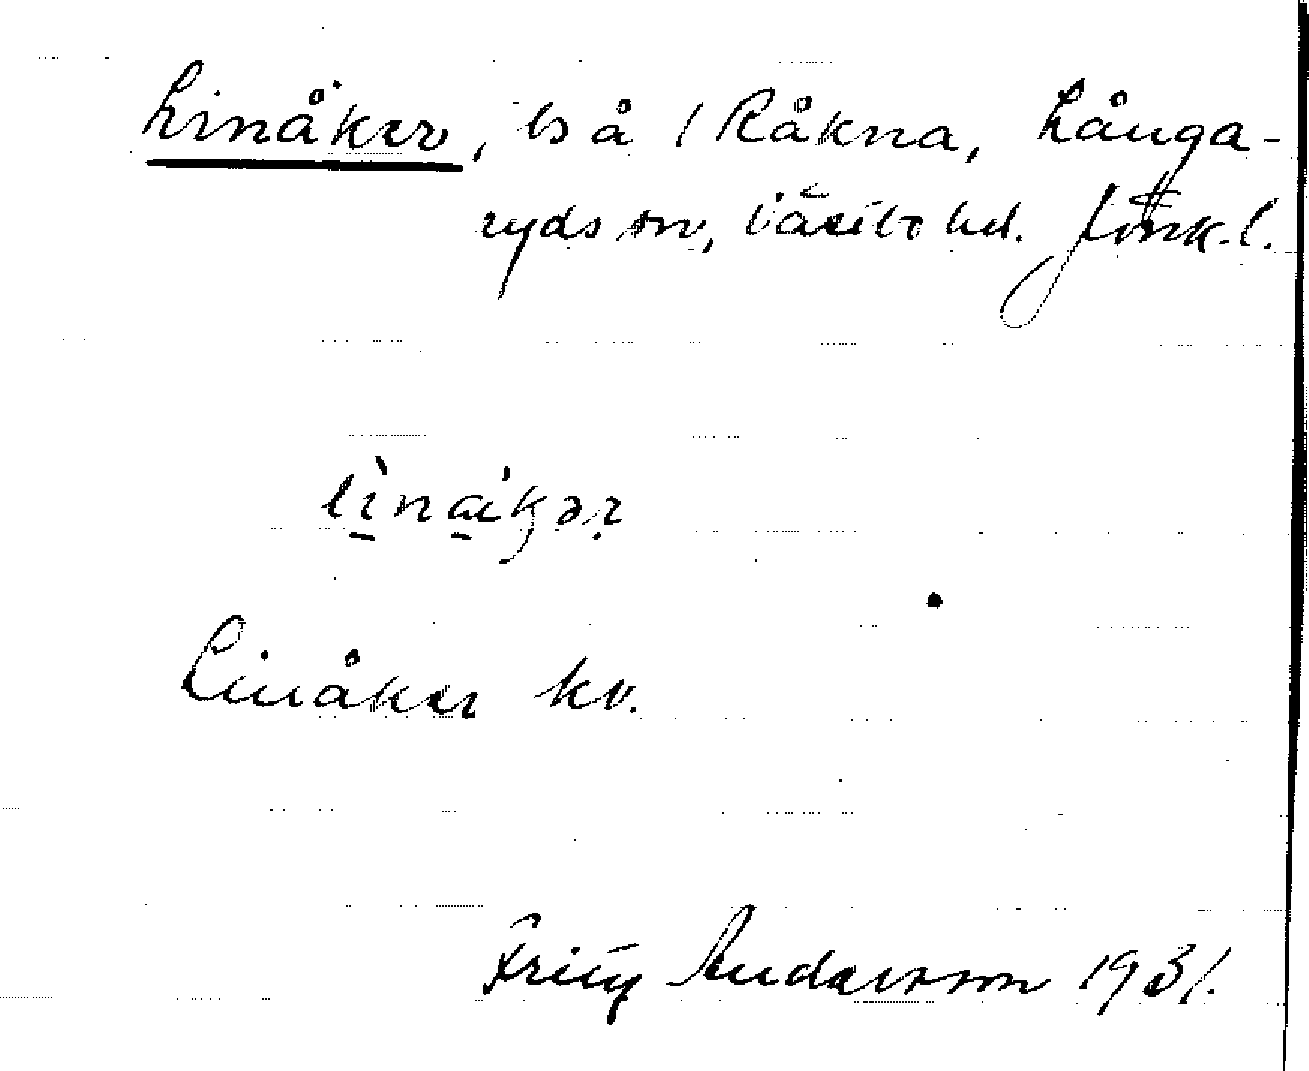 Linåker, ls å 1 Råkna, Långa-
ryds sn, Västbo hd. Jönk. l.
lìnåkər
Linåker kv.
Fritz Andersson 1931.